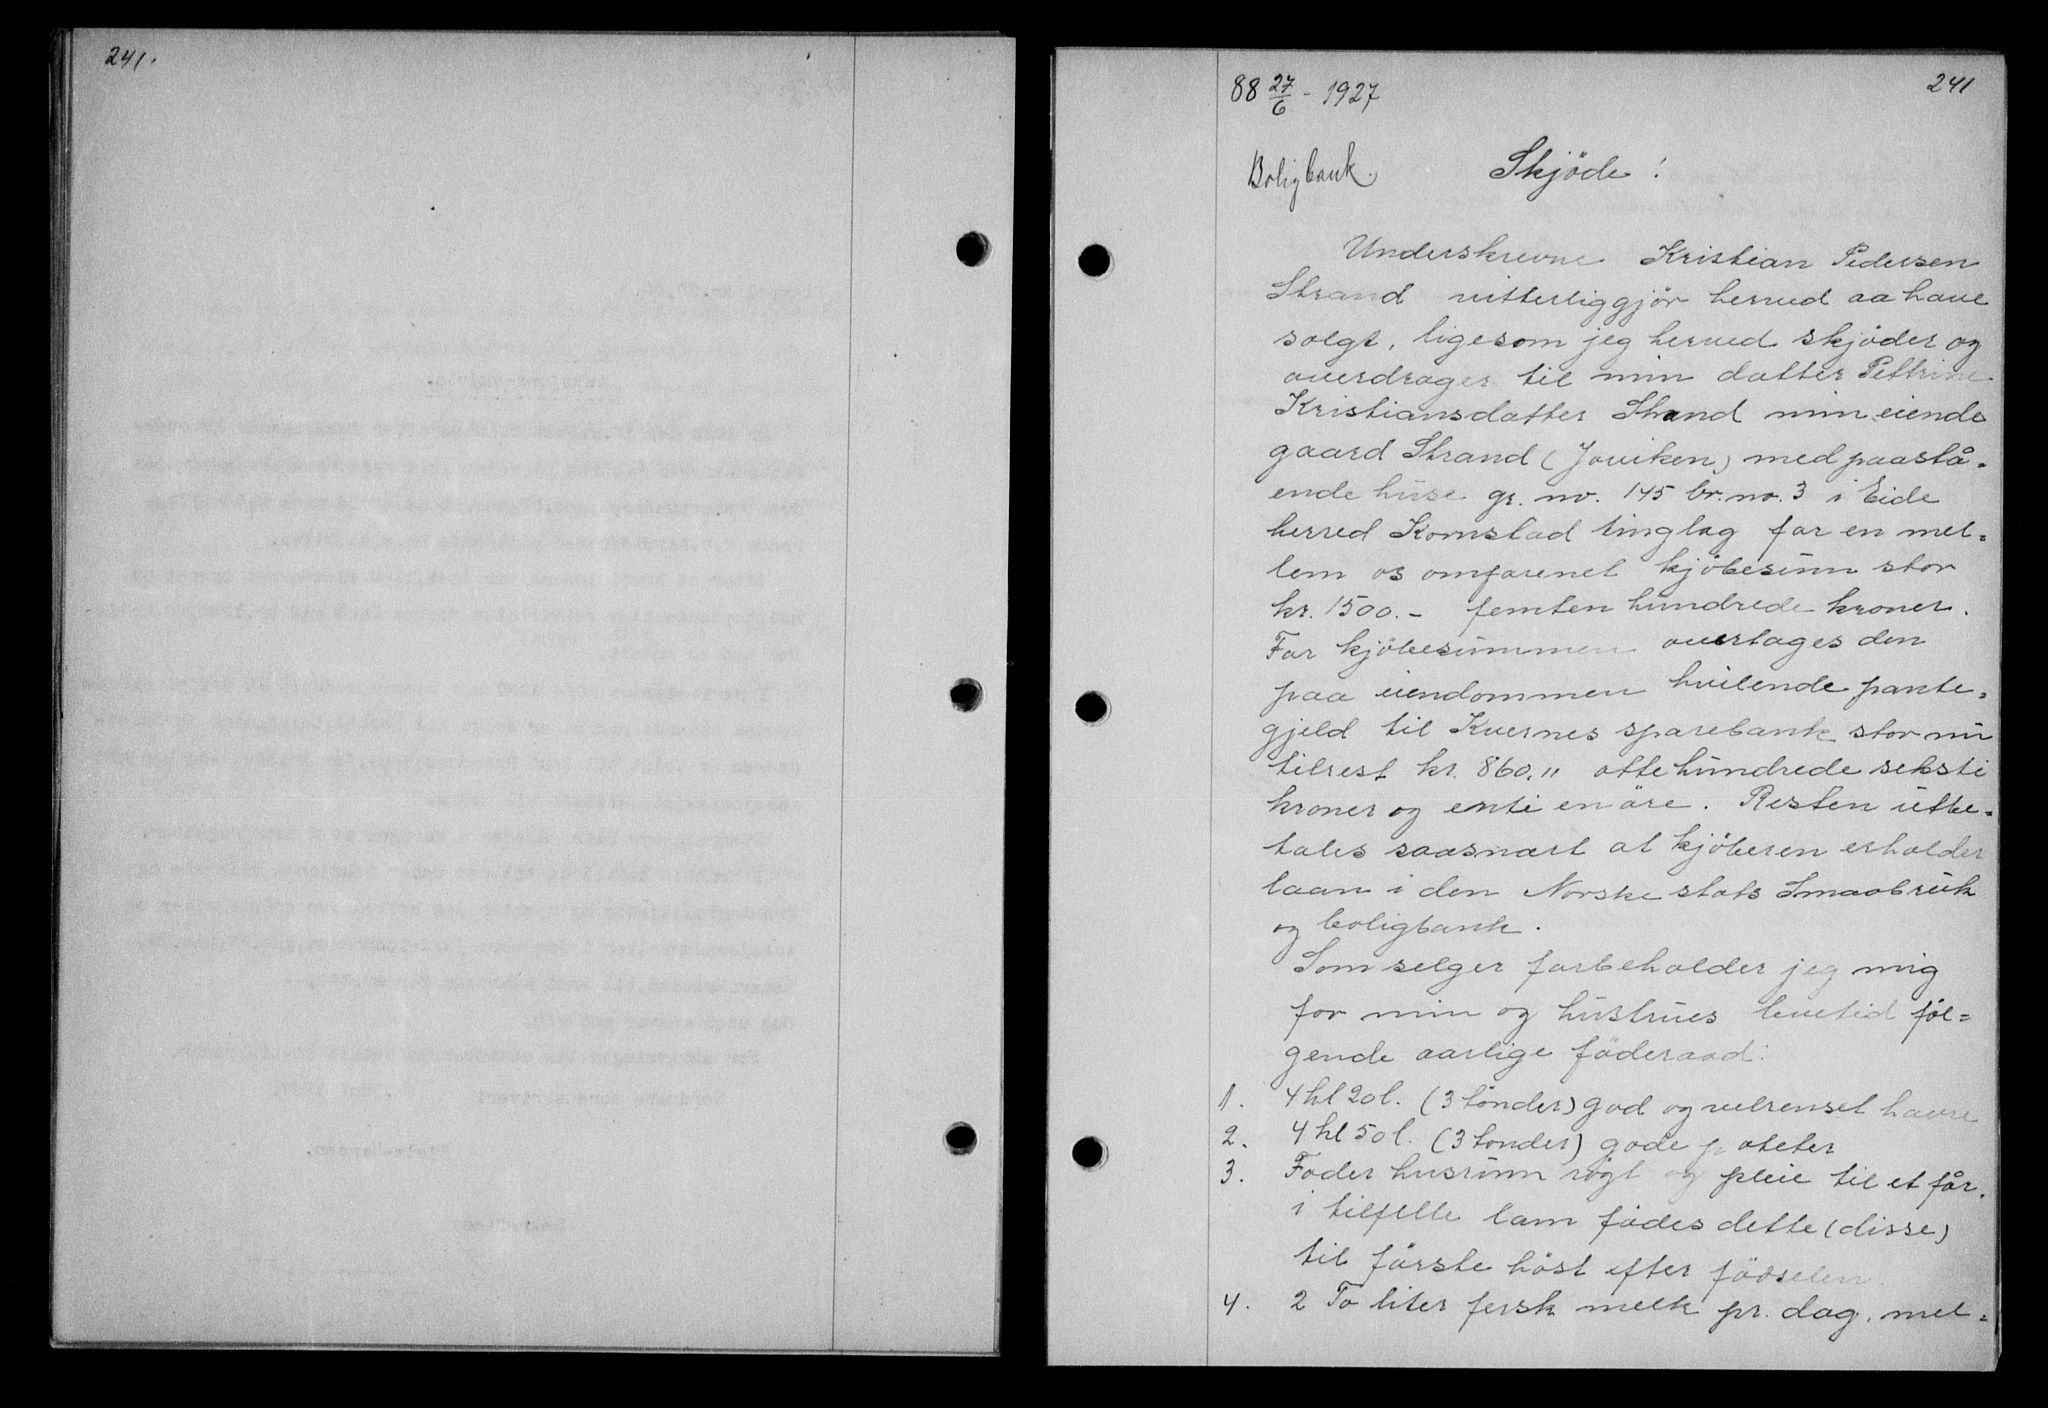 241.
88 27/6 - 1927
241
Boligbank.
Skjöde!
Underskrevne Kristian Pedersen
Strand vitterliggjör herved aa have
solgt, ligesom jeg herved skjöder og
overdrager til min datter Pettrine
Kristiansdatter Strand min eiende
gaard Strand (Joviken) med paastå-
ende huse gr. no. 145 br. no. 3 i Eide
herred Kornstad tinglag for en mel=
lem os omforenet kjöbesum stor
kr. 1500.- femten hundrede kroner.
For kjöbesummen overtages den
paa eiendommen hvilende pante=
gjeld til Kvernes sparebank stor nu
tilrest kr. 860," ottehundrede seksti
kroner og enti en öre. Resten utbe=
tales saasnart at kjöberen erholder
laan i den Norske stats Smaabruk
og boligbank.
Som selger forbeholder jeg mig
for min og hustrues levetid föl=
gende aarlige föderaad:
1. 4 hl 20 l. (3 tönder) god og velrenset havre
2. 4 hl 50 l. (3 tönder) gode poteter
3. Foder husrum rögt og pleie til et får.
i tilfelle lam födes dette (disse)
til förste höst efter födselen.
4. 2 To liter fersk melk pr. dag. mel=